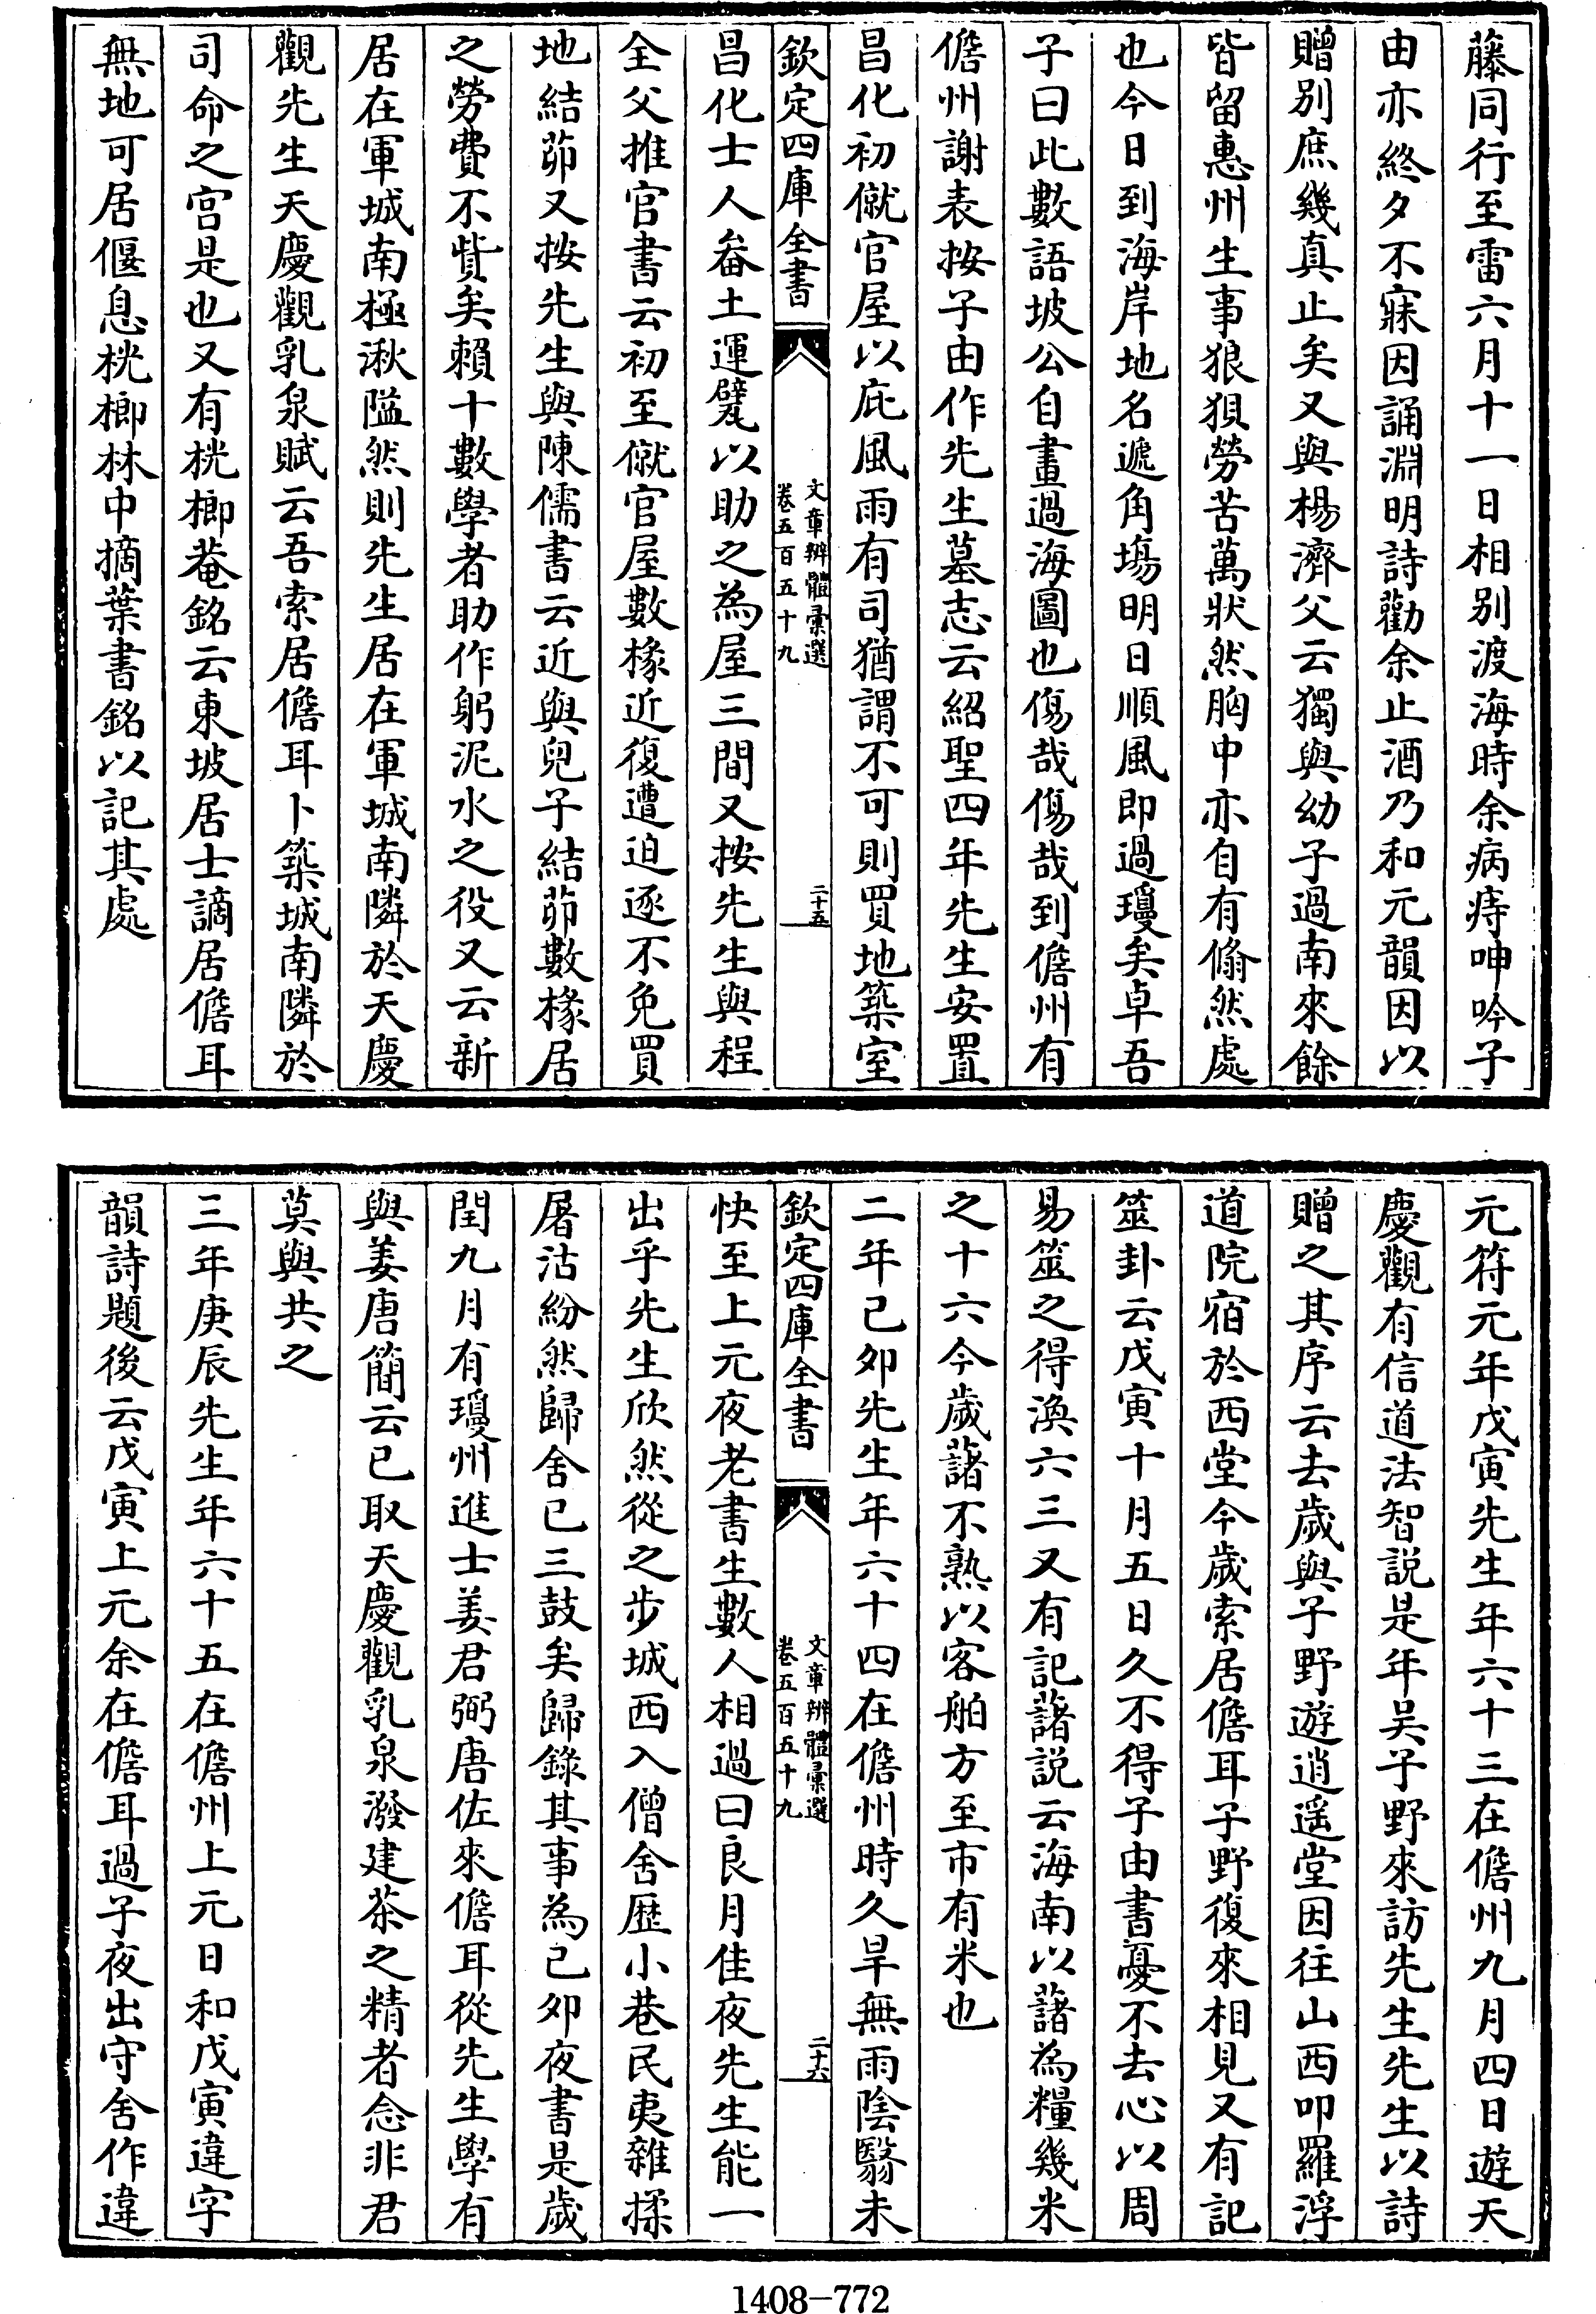 藤同行至雷六月十一日相别渡海時余病痔呻吟子
由亦終夕不寐因誦淵明詩勸余止酒乃和元韻因以
贈别庶幾真止矣又與楊濟父云獨與幼子過南來餘
皆留惠州生事狼狽勞苦萬狀然胸中亦自有翛然處
也今日到海岸地名遞角塲明日順風即過瓊矣卓吾
子曰此數語坡公自畫過海圖也傷哉傷哉到儋州有
儋州謝表按子由作先生墓志云紹聖四年先生安置
昌化初僦官屋以庇風雨有司猶謂不可則買地築室
欽定四庫全書
文章辨體彙選
卷五百五十九
二十五
昌化士人畚土運甓以助之為屋三間又按先生與程
全父推官書云初至僦官屋數椽近復遭迫逐不免買
地結茆又按先生與陳儒書云近與兒子結茆數椽居
之勞費不貲矣賴十數學者助作躬泥水之役又云新
居在軍城南極湫隘然則先生居在軍城南隣於天慶
觀先生天慶觀乳泉賦云吾索居儋耳卜築城南隣於
司命之宫是也又有桄榔菴銘云東坡居士謫居儋耳
無地可居偃息桄榔林中摘葉書銘以記其處
元符元年戊寅先生年六十三在儋州九月四日遊天
慶觀有信道法智説是年吴子野來訪先生先生以詩
贈之其序云去歲與子野遊逍遥堂因往山西叩羅浮
道院宿於西堂今歲索居儋耳子野復來相見又有記
筮卦云戊寅十月五日久不得子由書憂不去心以周
易筮之得渙六三又有記藷説云海南以藷為糧幾米
之十六今歲藷不熟以客舶方至市有米也
二年己夘先生年六十四在儋州時久旱無雨陰翳未
欽定四庫全書
文章辨體彙選
卷五百五十九
二十六
快至上元夜老書生數人相過曰良月佳夜先生能一
出乎先生欣然從之步城西入僧舍歷小巷民夷雜揉
屠沽紛然歸舍已三鼓矣歸錄其事為己夘夜書是歲
閏九月有瓊州進士姜君弼唐佐來儋耳從先生學有
與姜唐簡云已取天慶觀乳泉潑建茶之精者念非君
莫與共之
三年庚辰先生年六十五在儋州上元日和戊寅違字
韻詩題後云戊寅上元余在儋耳過子夜出守舍作違
1408-772